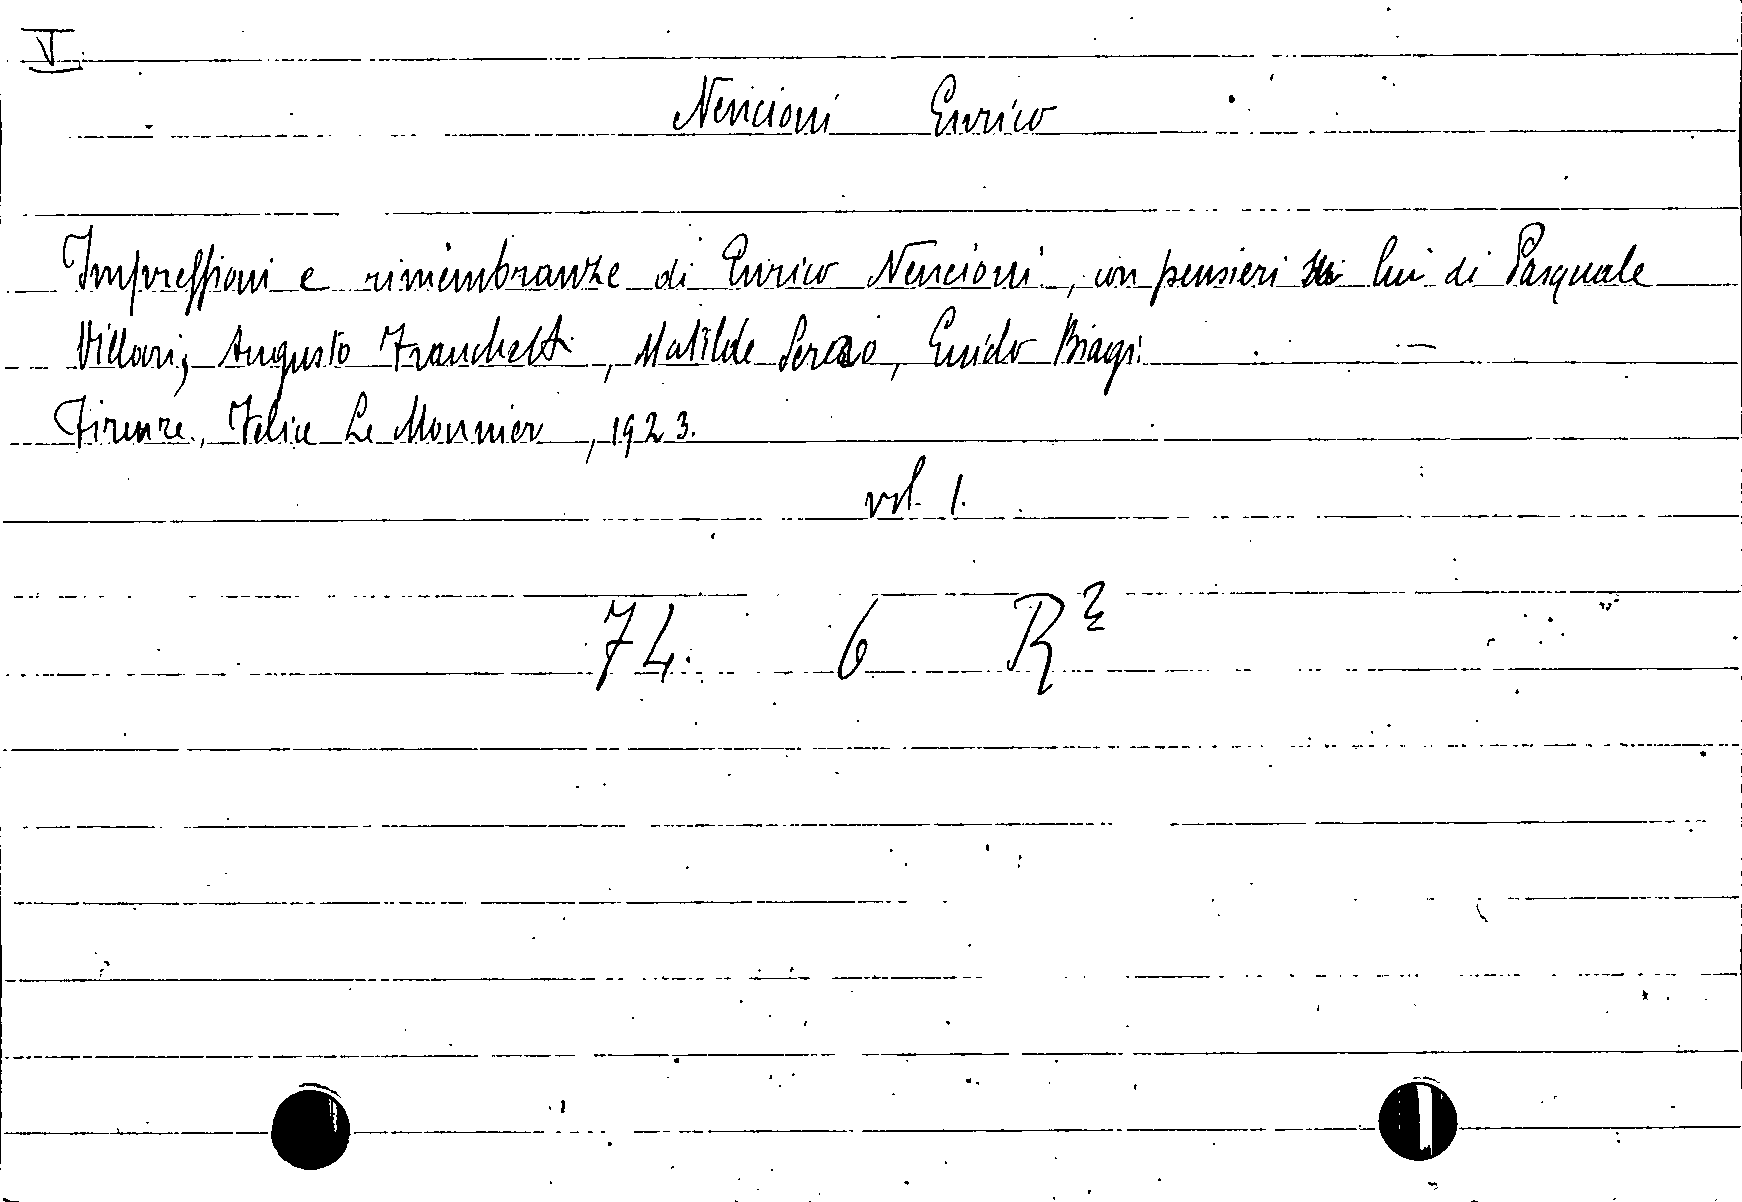 V
Nencioni Enrico
Impressioni e rimembranze di Enrico Nencioni, con pensieri su lui di Pasquale
Villari, Augusto Franchetti, Matilde Serao, Guido Biagi.
Firenze, Felice Le Monnier, 1923.
vol. 1.
74. 6 R²